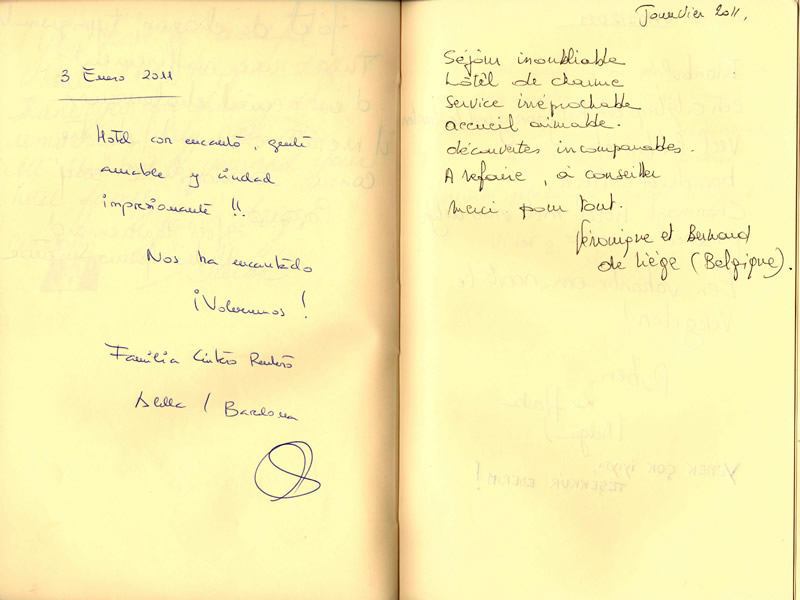 3 Enero 2011
Hotel con encanto, gente
amable y ciudad
impresionante !!
Nos ha encantado
¡Volveremos!
Familia
Alella / Barcelona
Janvier 2011,
Séjour inoubliable
Hôtel de charme
Service irréprochable
accueil aimable.
découvertes incomparables.
A refaire, à conseiller
Merci pour tout.
Véronique et Bernard
de Liège (Belgique).
YEMEK ÇOK İYİYDİ
TEŞEKKÜR EDERİM!